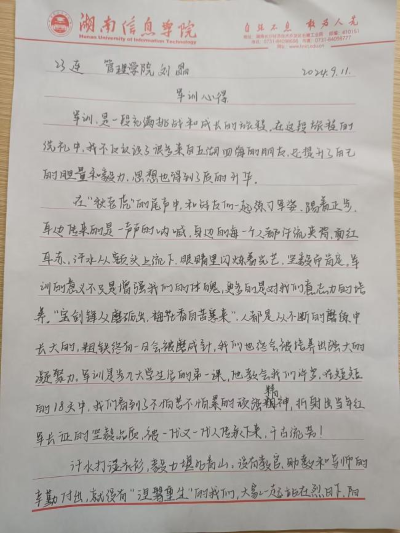 湖南信息学院 自强不息 敢为人先
Hunan University of Information Technology
23连 管理学院 刘晶 2024.9.11.
军训心得
军训,是一段充满挑战和成长的旅程,在这段旅程的
洗礼中,我不仅认识了许多来自五湖四海的朋友,还提升了自己
的胆量和毅力,思想也得到了质的升华。
在“秋老虎”的尾声中,和战友们一起练习军姿,踢着正步,
耳边传来的是一声声的呐喊,身边的每一个人都汗流夹背,面红
耳赤,汗水从额头上流下,眼睛里闪烁着光芒,坚毅而笃定,军
训的意义不只是增强我们的体魄,更多的是对我们意志力的培
养。“宝剑锋从磨砺出,梅花香自苦寒来”,人都是从不断的磨练中
长大的,粗铁终有一日会被磨成针,我们也终会被培养出强大的
凝聚力,军训是步入大学生活的第一课,他教会我们许多,在短短
的18天中,我们看到了不怕苦不怕累的顽强精神,折射出当年红
军长征的坚毅品质,被一代又一代人传承下来,千古流芳!
汗水打湿衣衫,毅力堪比青山,没有教官,助教和导师的
辛勤付出,就没有“涅槃重生”的我们,大家一起站在烈日下,阳